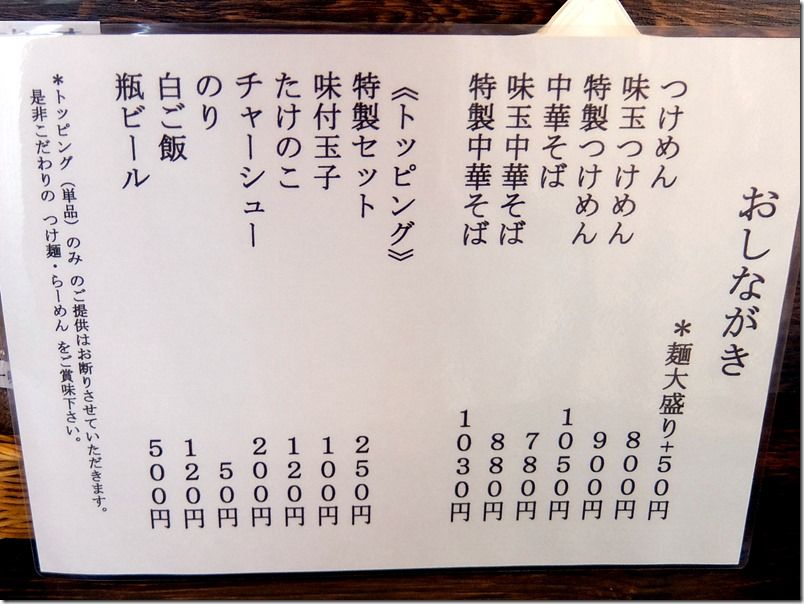 おしながき
＊麺大盛り+50円
つけめん 800円
味玉つけめん 900円
特製つけめん 1050円
中華そば 780円
味玉中華そば 880円
特製中華そば 1030円
《トッピング》
特製セット 250円
味付玉子 100円
たけのこ 120円
チャーシュー 200円
のり 50円
白ご飯 120円
瓶ビール 500円
＊トッピング（単品）のみ のご提供はお断りさせていただきます。
是非こだわりの つけ麺・らーめん をご賞味下さい。